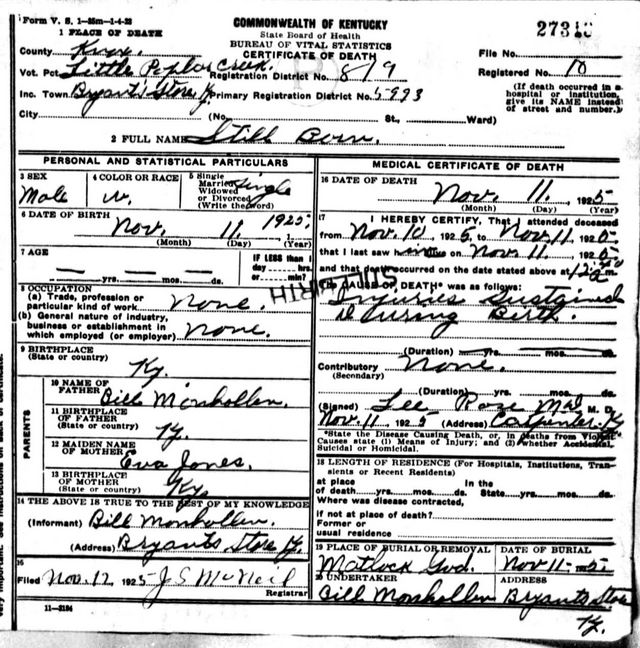 Form V. S. 1-25m-1-4-23
COMMONWEALTH OF KENTUCKY
State Board of Health
BUREAU OF VITAL STATISTICS
CERTIFICATE OF DEATH
1 PLACE OF DEATH
County Knox.
Vot. Pct. Little Poplar Creek. Registration District No. 819
Inc. Town Bryants Store Ky. Primary Registration District No. 5993
City (No. St., Ward)
File No.
Registered No. 10
(If death occurred in a
hospital or institution,
give its NAME instead
of street and number.)
2 FULL NAME Still Born.
PERSONAL AND STATISTICAL PARTICULARS
3 SEX
Male
4 COLOR OR RACE
w.
5 Single
Married
Widowed
or Divorced
(Write the word)
Single
6 DATE OF BIRTH
Nov. 11, 1925.
(Month) (Day) (Year)
7 AGE
yrs. mos. ds.
IF LESS than 1
day hrs.
or min.?
8 OCCUPATION
(a) Trade, profession or
particular kind of work None.
(b) General nature of industry,
business or establishment in
which employed (or employer) None.
9 BIRTHPLACE
(State or country)
Ky.
PARENTS
10 NAME OF
FATHER
Bill Monhollen.
11 BIRTHPLACE
OF FATHER
(State or country)
Ky.
12 MAIDEN NAME
OF MOTHER
Eva Jones.
13 BIRTHPLACE
OF MOTHER
(State or country)
Ky.
14 THE ABOVE IS TRUE TO THE BEST OF MY KNOWLEDGE
(Informant) Bill Monhollen.
(Address) Bryants Store Ky.
15
Filed Nov. 12, 1925 J S McNeil
Registrar
11-3184
MEDICAL CERTIFICATE OF DEATH
16 DATE OF DEATH
Nov. 11. 1925
(Month) (Day) (Year)
17
I HEREBY CERTIFY, That I attended deceased
from Nov. 10, 1925, to Nov 11, 1925.
that I last saw on Nov. 11, 1925
and that death occurred on the date stated above at
CAUSE OF DEATH* was as follows:
Injuries Sustained
During Birth
(Duration) yrs. mos. ds.
Contributory None.
(Secondary)
(Duration) yrs. mos. ds.
(Signed) Lee Rose M. D.
Nov. 11 1925 (Address) Carpenter. Ky
*State the Disease Causing Death, or, in deaths from Violent
Causes state (1) Means of Injury; and (2) whether Accidental,
Suicidal or Homicidal.
18 LENGTH OF RESIDENCE (For Hospitals, Institutions, Tran-
sients or Recent Residents)
at place In the
of death yrs. mos. ds. State yrs. mos. ds.
Where was disease contracted,
if not at place of death?
Former or
usual residence
19 PLACE OF BURIAL OR REMOVAL
Matlock Gvd.
DATE OF BURIAL
Nov 11- 1925.
20 UNDERTAKER
Bill Monhollen
ADDRESS
Bryants Store
Ky.